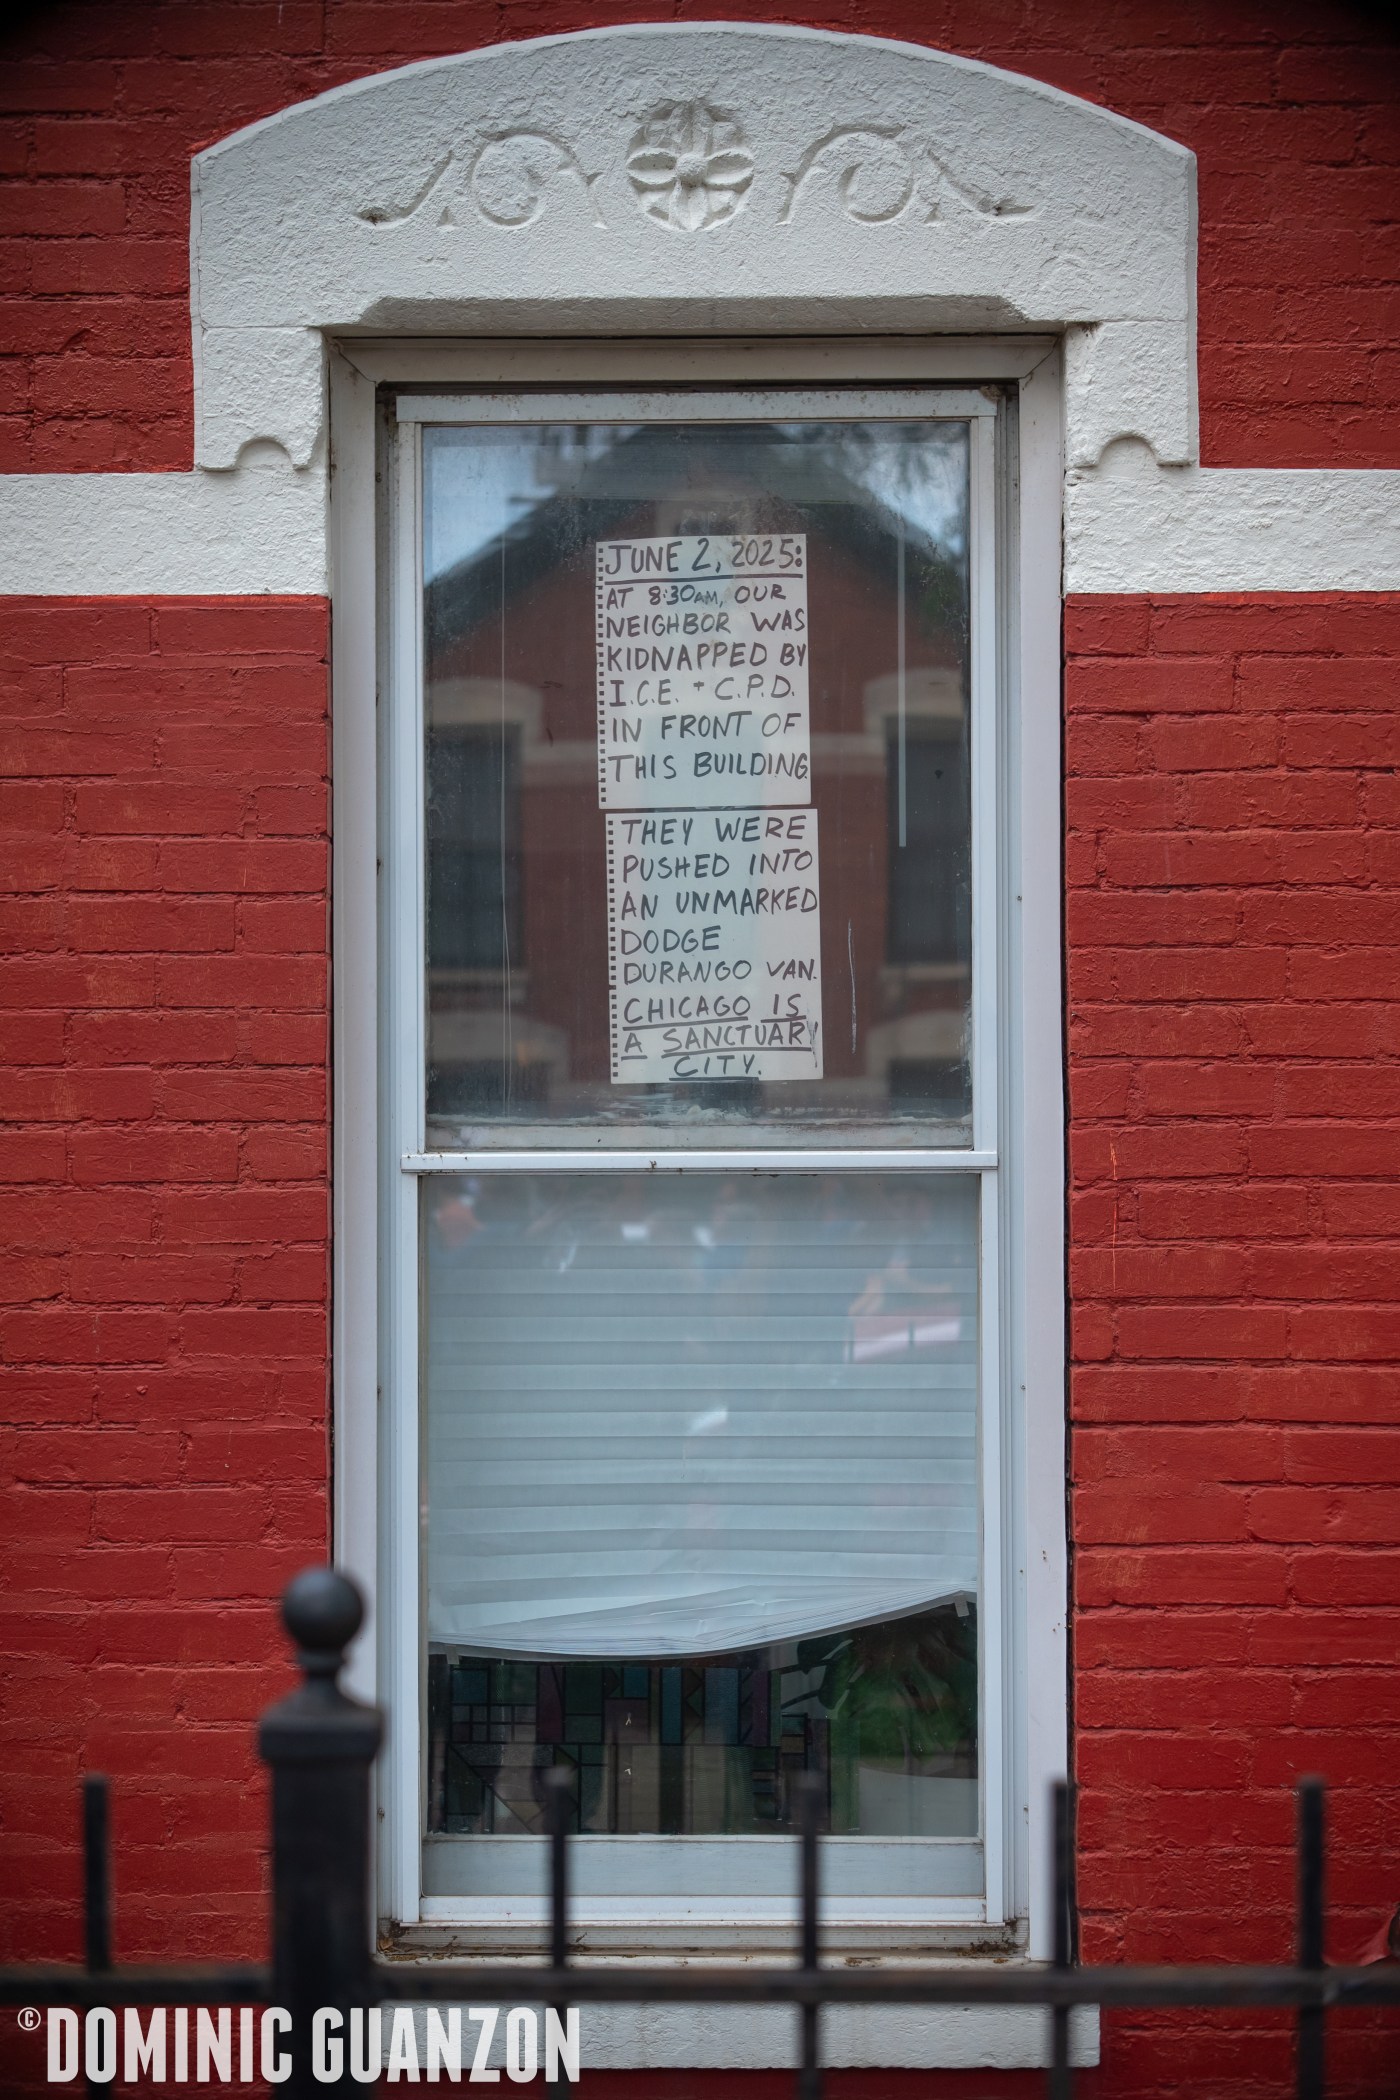 JUNE 2, 2025:
AT 8:30AM, OUR
NEIGHBOR WAS
KIDNAPPED BY
I.C.E. + C.P.D.
IN FRONT OF
THIS BUILDING
THEY WERE
PUSHED INTO
AN UNMARKED
DODGE
DURANGO VAN.
CHICAGO IS
A SANCTUARY
CITY.
© DOMINIC GUANZON